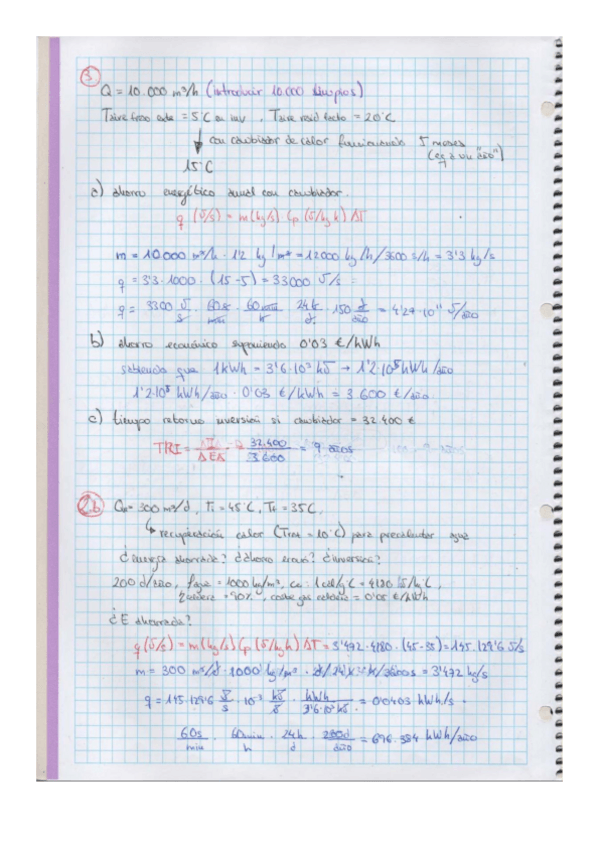 3
Q = 10.000 m³/h (introducir 10.000 limpios)
Taire fresco entra = 5°C en inv , Taire = 20°C
con cambiador de calor funcionando 5 meses
15°C
a) ahorro energético anual con cambiador.
q (J/s) = m(kg/s) Cp (J/kg k) ΔT
m = 10000 m³/h · 1'2 kg/m³ = 12000 kg/h/3600 s/h = 3'3 kg/s
q = 3'3 · 1000 · (15-5) = 33000 J/s
q = 3300 J/s · 60s/min · 60min/h · 24h/d · 150 d/año = 4'27·10¹¹ J/año
b) ahorro económico suponiendo 0'03 €/kWh
sabiendo que 1kWh = 3'6·10³ kJ → 1'2·10⁵ kWh/año
1'2·10⁵ kWh/año · 0'03 €/kWh = 3.600 €/año
c) tiempo retorno inversión si cambiador = 32.400 €
TRI = ΔI/ΔEA = 32.400/3600 = 9 años
2.b
Qp = 300 m³/d , Ti = 45°C , Tf = 35°C ,
recuperación calor (= 10°C) para precalentar agua
¿energía ahorrada? ¿ahorro econó? ¿inversión?
200 d/año, fagua = 1000 kg/m³, ce = 1 cal/g°C = 4180 J/kg°C ,
= 90% , coste gas = 0'05 €/kWh
¿E ahorrada?
q (J/s) = m(kg/s) Cp (J/kg k) ΔT = 3'472 · 4180 · (45-35) = 145.129'6 J/s
m = 300 m³/d · 1000 kg/m³ · d/24h · h/3600s = 3'472 kg/s
q = 145.129'6 J/s · 10⁻³ kJ/J · kWh/3'6·10³ kJ = 0'0403 kWh/s ·
60s/min · 60min/h · 24h/d · 200d/año = 696.384 kWh/año